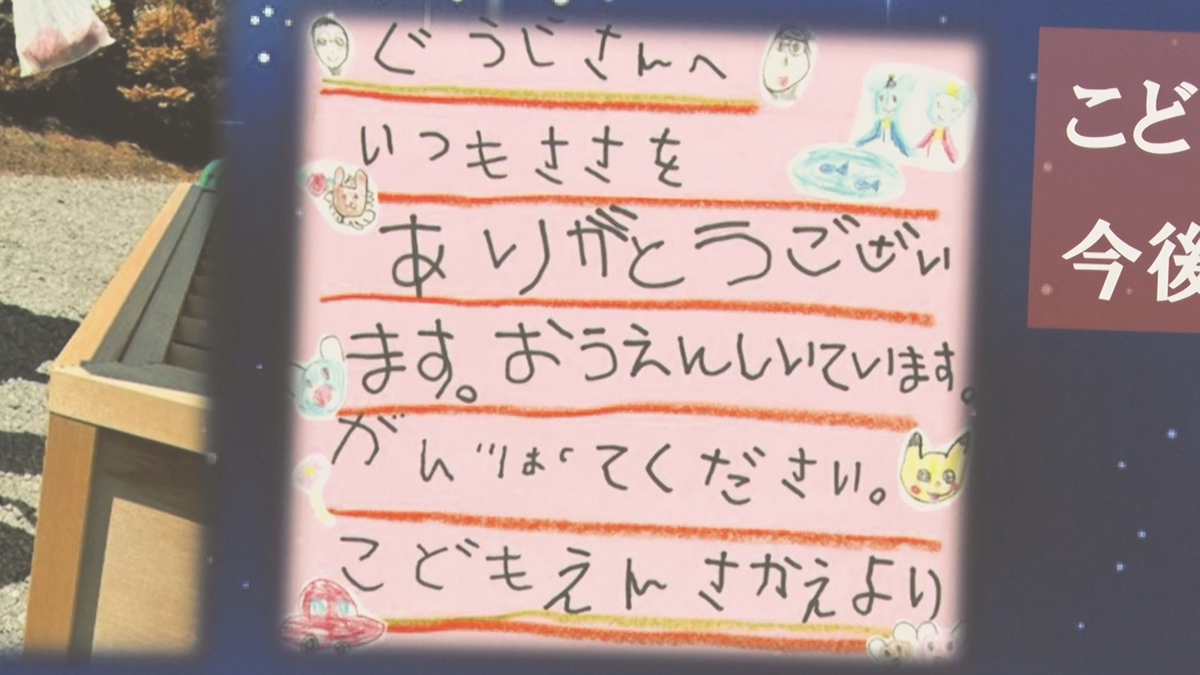 ぐうじさんへ
いつもささを
ありがとうござい
ます。おうえんしいています。
がんばってください。
こどもえんさかえより
こど
今後